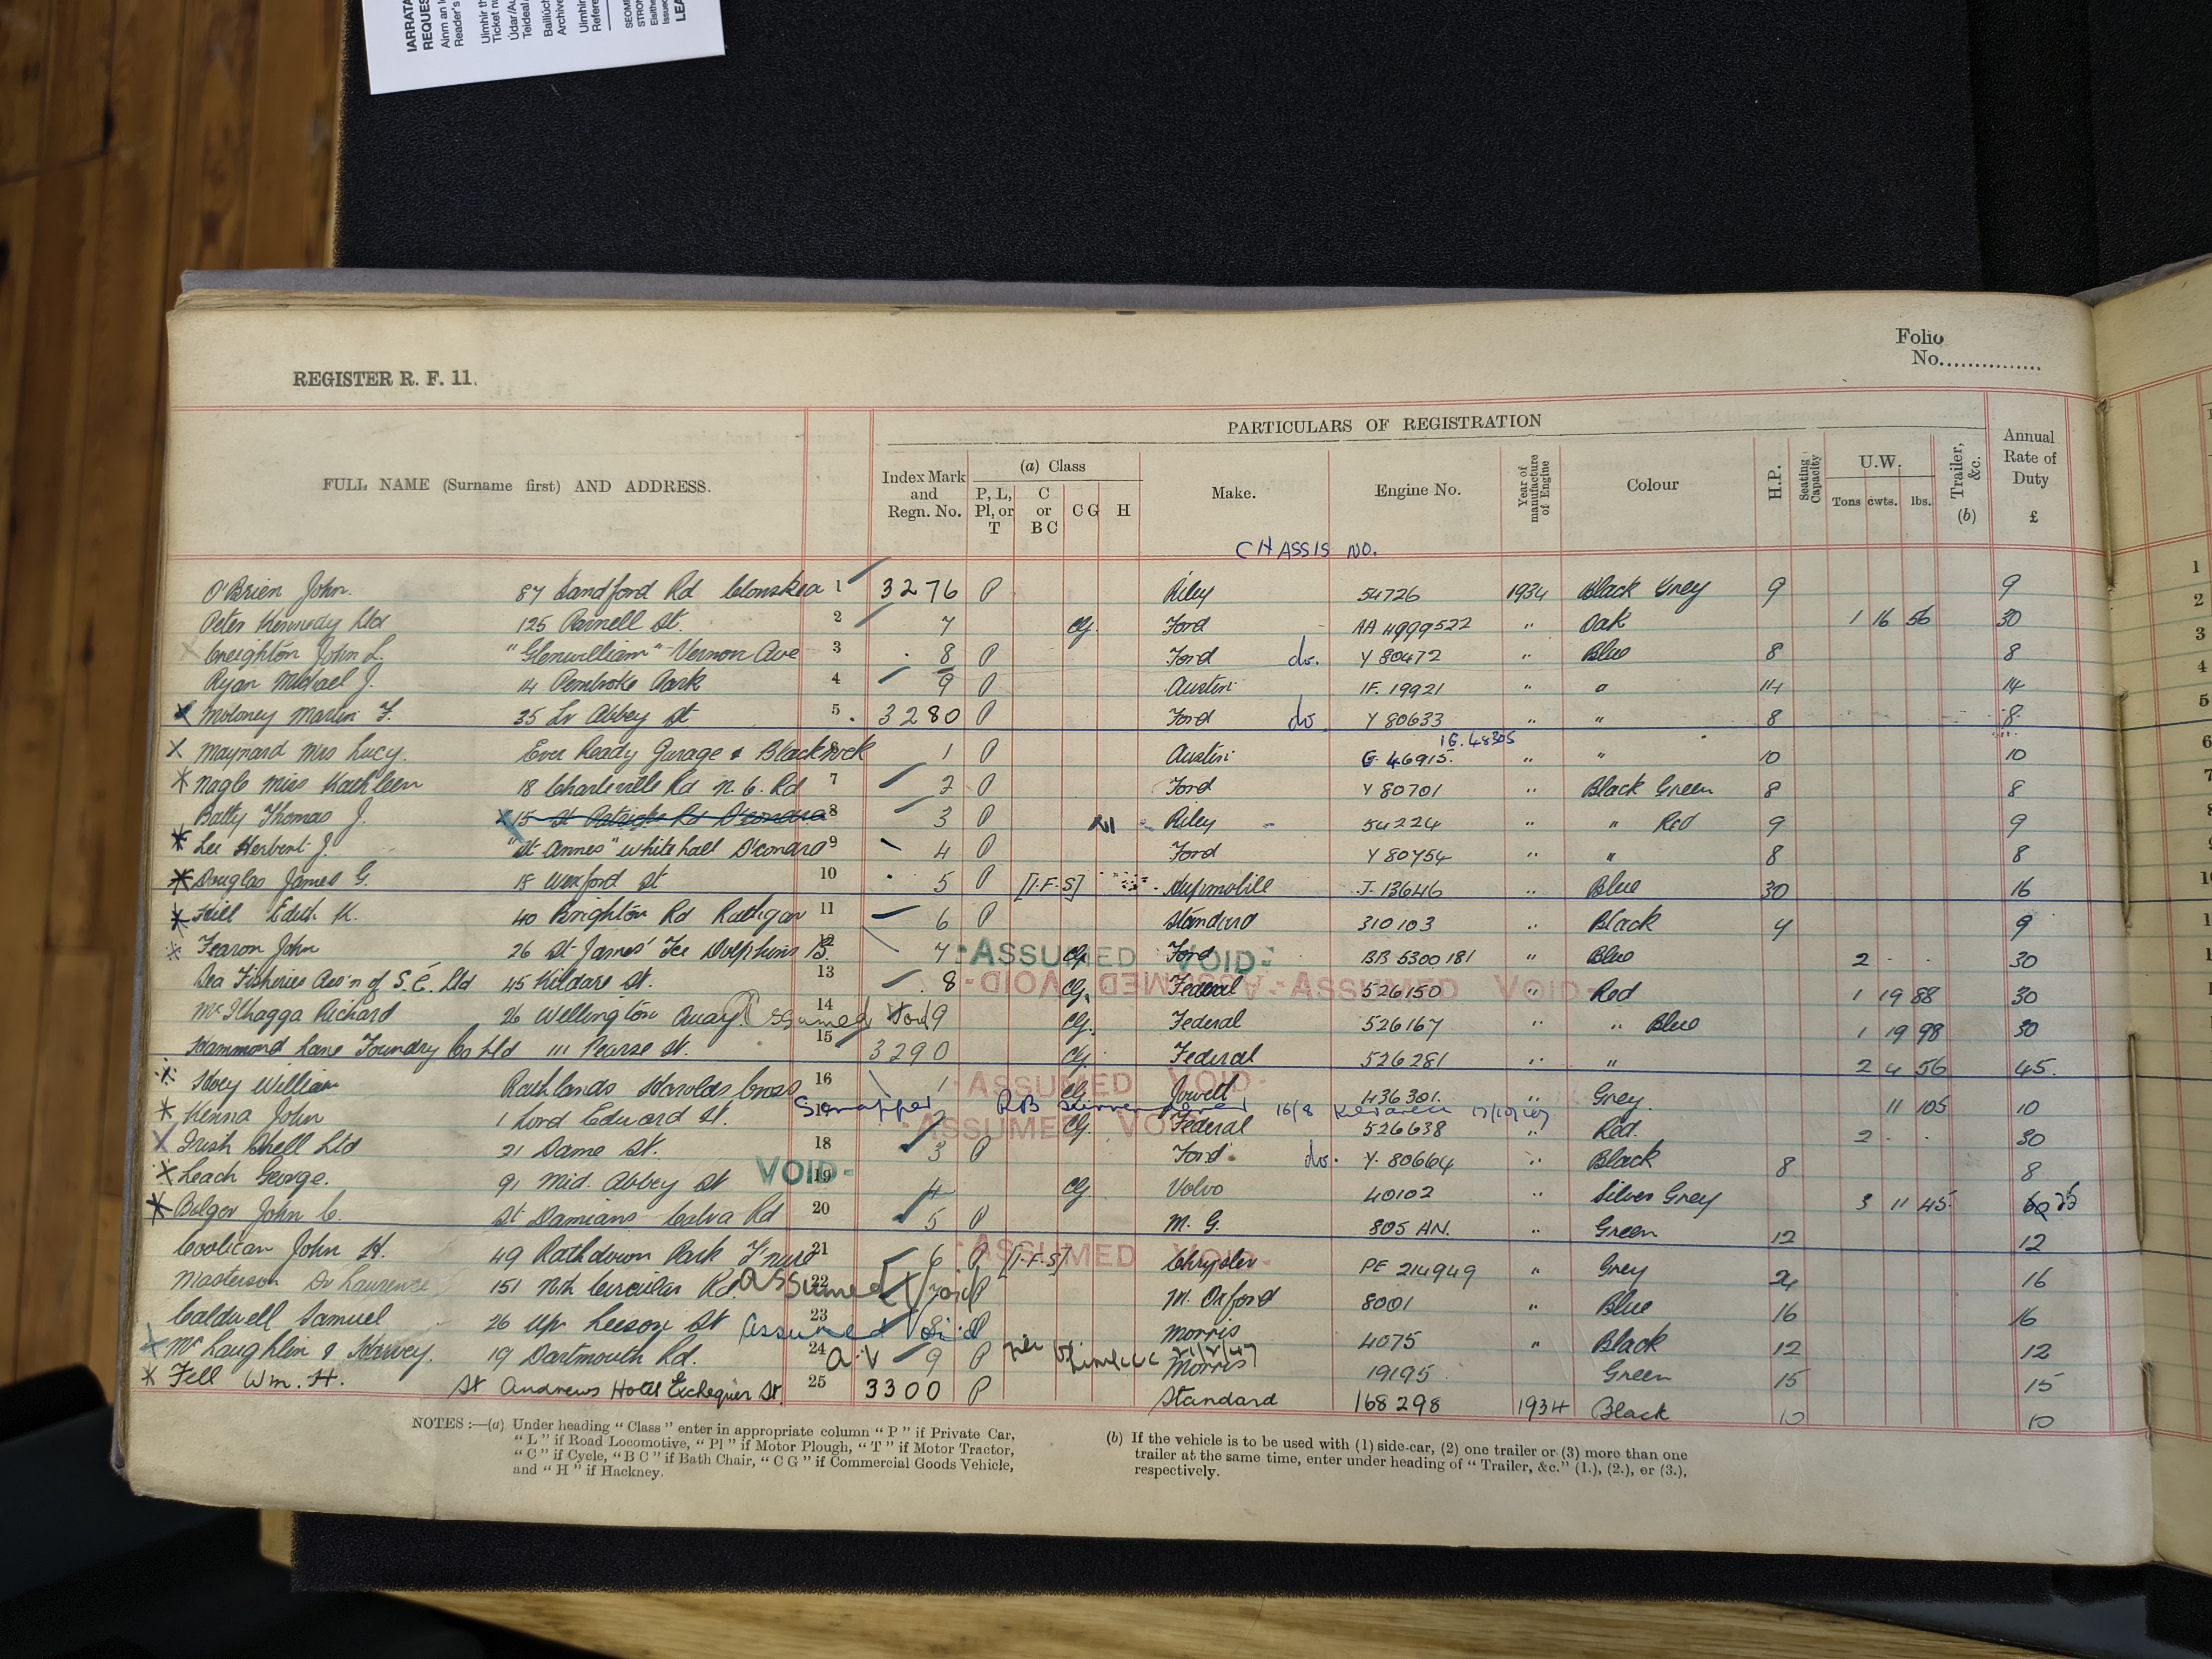 IARRATA
REQUES
Ainm an l
Reader's
Uimhir th
Ticket nu
Údar/Au
Teideal
Bailiúch
Archive
Uimhir
Refere
REGISTER R. F. 11.
Folio
No...............
PARTICULARS OF REGISTRATION
FULL NAME (Surname first) AND ADDRESS.
Index Mark and Regn. No.
(a) Class
P, L, Pl, or T
C or B C
C G
H
Make.
Engine No.
Year of manufacture of Engine
Colour
H.P.
Seating Capacity
U.W.
Tons cwts. lbs.
Trailer, &c. (b)
Annual Rate of Duty £
CHASSIS NO.
O'Brien John. 87 Sandford Rd Clonskea 1 3276 P Riley 54726 1934 Black Grey 9 9
Peter Kennedy Ltd 125 Parnell St. 2 7 CG. Ford AA 4999522 " Oak 1 16 56 30
Creighton John L. "Glenwilliam" Vernon Ave 3 8 P Ford do. Y 80472 " Blue 8 8
Ryan Michael J. 14 Pembroke Park 4 9 P Austin 1F. 19921 " " 14 14
Moloney Martin F. 35 Lr Abbey St 5 3280 P Ford do Y 80633 " " 8 8
Maynard Mrs Lucy. Ever Ready Garage & Blackrock 1 P Austin G. 46915. 1G. 48305 " " 10 10
Nagle Miss Kathleen 18 Charleville Rd N. C. Rd 7 2 P Ford Y 80701 " Black Green 8 8
Batty Thomas J. 15 St Patricks Rd D'condra 8 3 P Riley 54224 " " Red 9 9
Lee Herbert J. "St Annes" Whitehall D'condra 9 4 P Ford Y 80754 " " 8 8
Douglas James G. 18 Wexford St 10 5 P [I.F.S] Hupmobile J. 13646 " Blue 30 16
Hill Edith K. 40 Brighton Rd Rathgar 11 6 P Standard 310103 " Black 9 9
Fearon John 26 St James' Tce Dolphins B. 12 7 CG ASSUMED VOID Ford BB 5300181 " Blue 2 - - 30
Sea Fisheries Ass'n of S.É. Ltd 45 Kildare St. 13 8 CG. ASSUMED VOID Federal ASSUMED VOID 526150 " Red 1 19 88 30
26 Wellington Quay Assumed Void 14 9 CG. Federal 526167 " " Blue 1 19 98 30
Hammond Lane Foundry Co Ltd 111 Pearse St. 15 3290 CG. Federal 526281 " " 2 4 56 45.
Hoey William Rathlands Harolds Cross 16 1 CG ASSUMED VOID Jowett 436301. " Grey. 11 105 10
Scrapped RB 16/8
Kenna John 1 Lord Edward St. 17 2 CG. ASSUMED VOID Federal 526638 " Red. 2 - - 30
Irish Shell Ltd 21 Dame St. 18 3 P Ford do. Y. 80664 " Black 8 8
Leach George. 91 Mid. Abbey St VOID 19 4 CG. Volvo 40102 " Silver Grey 3 11 45.
Bolger John C. St Damians Calva Rd 20 5 P M. G. 805 AN. " Green 12 12
Coolican John H. 49 Rathdown Park T'nure 21 6 P [I.F.S] ASSUMED VOID Chrysler PE 214949 " Grey 24 16
Masterson Dr Laurence 151 Nth Circular Rd. Assumed Void 22 7 P M. Oxford 8001 Blue 16 16
Caldwell Samuel 26 Up. Leeson St Assumed Void 23 8 P Morris 4075 " Black 12 12
McLaughlin & Harvey. 19 Dartmouth Rd. 24 A.V 9 P Morris 19195 Green 15 15
Fell Wm. H. St Andrews Hotel Exchequer St. 25 3300 P Standard 168298 1934 Black 10 10
NOTES :—(a) Under heading "Class" enter in appropriate column "P" if Private Car,
"L" if Road Locomotive, "Pl" if Motor Plough, "T" if Motor Tractor,
"C" if Cycle, "B C" if Bath Chair, "C G" if Commercial Goods Vehicle,
and "H" if Hackney.
(b) If the vehicle is to be used with (1) side-car, (2) one trailer or (3) more than one
trailer at the same time, enter under heading of "Trailer, &c." (1.), (2.), or (3.),
respectively.